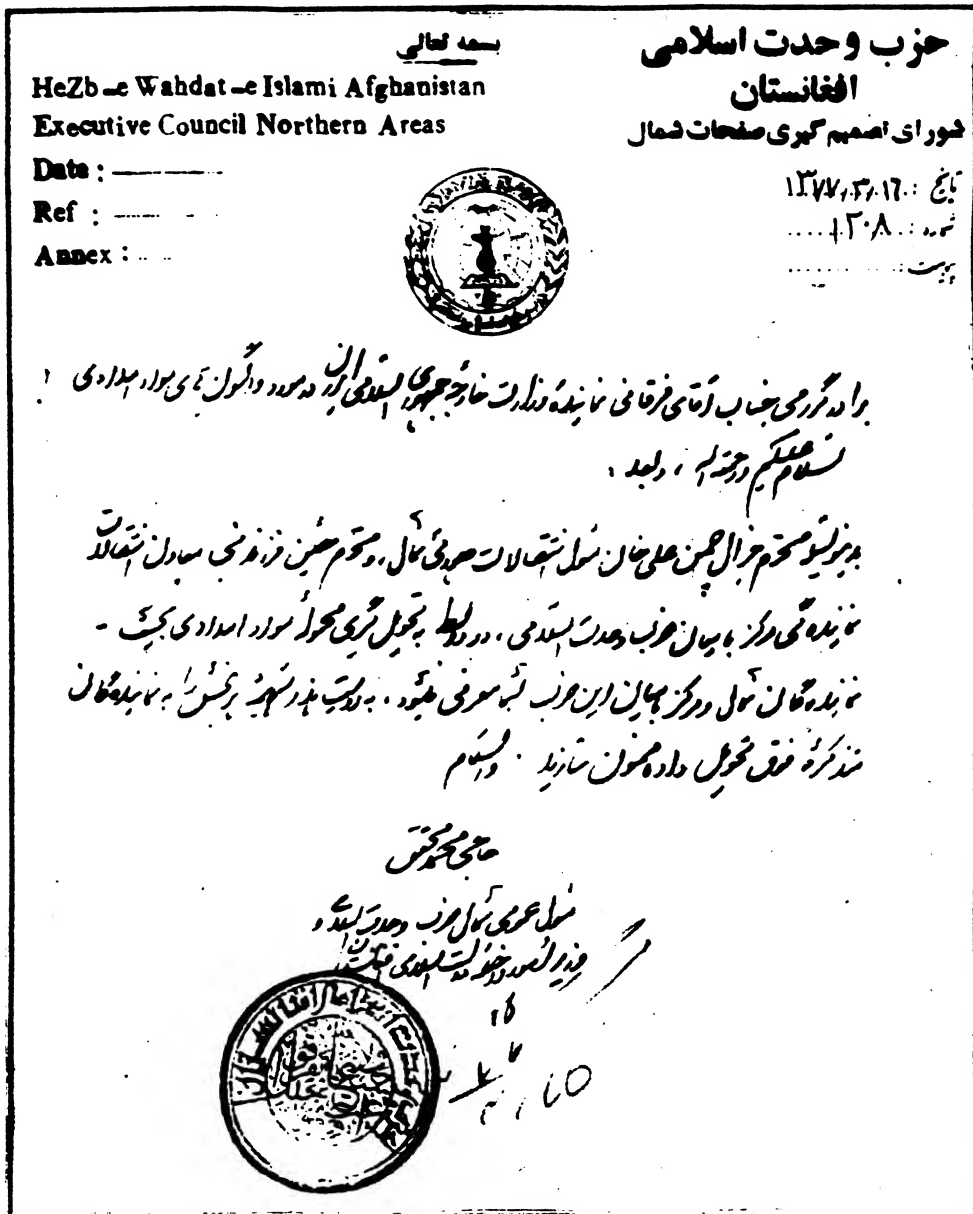 بسمه تعالی
حزب وحدت اسلامی
افغانستان
شورای تصمیم گیری صفحات شمال
HeZb-e Wahdat-e Islami Afghanistan
Executive Council Northern Areas
Date :
Ref :
Annex :
تاریخ : ۱۳۷۷٫۳٫۱۶
نمبر : ۱۲۰۸
پیوست :
برادر گرامی جناب آقای فرقانی نمایندهٔ وزارت خارجهٔ جمهوری اسلامی ایران در مورد واگون های مواد امدادی !
السلام علیکم ورحمة الله ، وبعد :
بدینوسیله محترم جنرال چمن علی خان مسول انتقالات شمال ، و محترم حسین معاون انتقالات
نمایندگی مرکز بامیان حزب وحدت اسلامی ، در رابطه به تحویل گیری محمولهٔ مواد امدادی بحیث -
نمایندهگان شمال ومرکز بامیان این حزب بشما معرفی میشود ، را به نمایندهگان
متذکرهٔ فوق تحویل داده ممنون سازید . والسلام
حاجی محمد محقق
مسول عمومی شمال حزب وحدت اسلامی و
وزیر امور داخله دولت اسلامی افغانستان